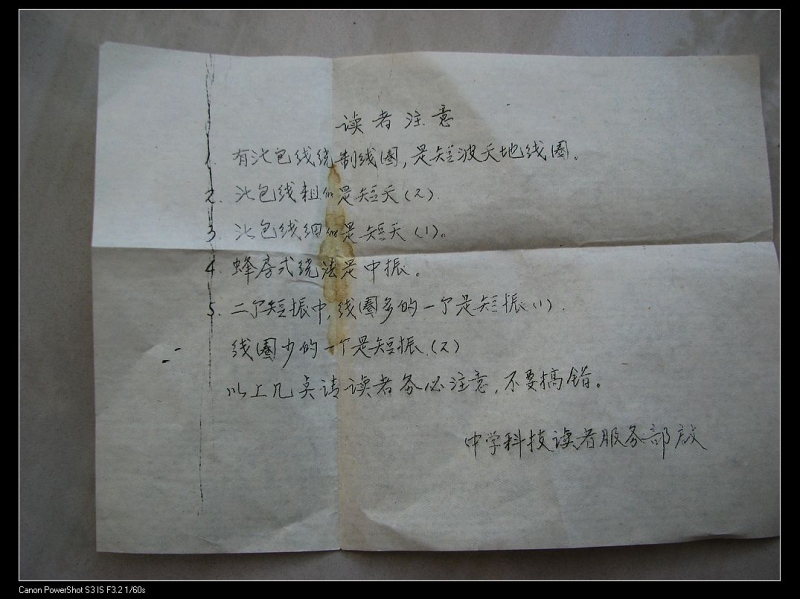 读者注意
1. 有沙包线绕制线圈,是短波天地线圈。
2. 沙包线粗的是短天(2).
3. 沙包线细的是短天(1)。
4. 蜂房式绕法是中振。
5. 二个短振中,线圈多的一个是短振(1).
线圈少的一个是短振.(2)
以上几点请读者务必注意,不要搞错。
中学科技读者服务部启
Canon PowerShot S3 IS F3.2 1/60s